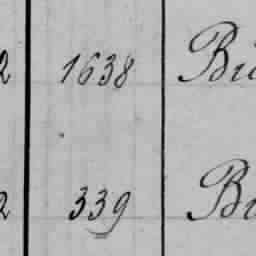 2 1638 Bu
2 339 Bu